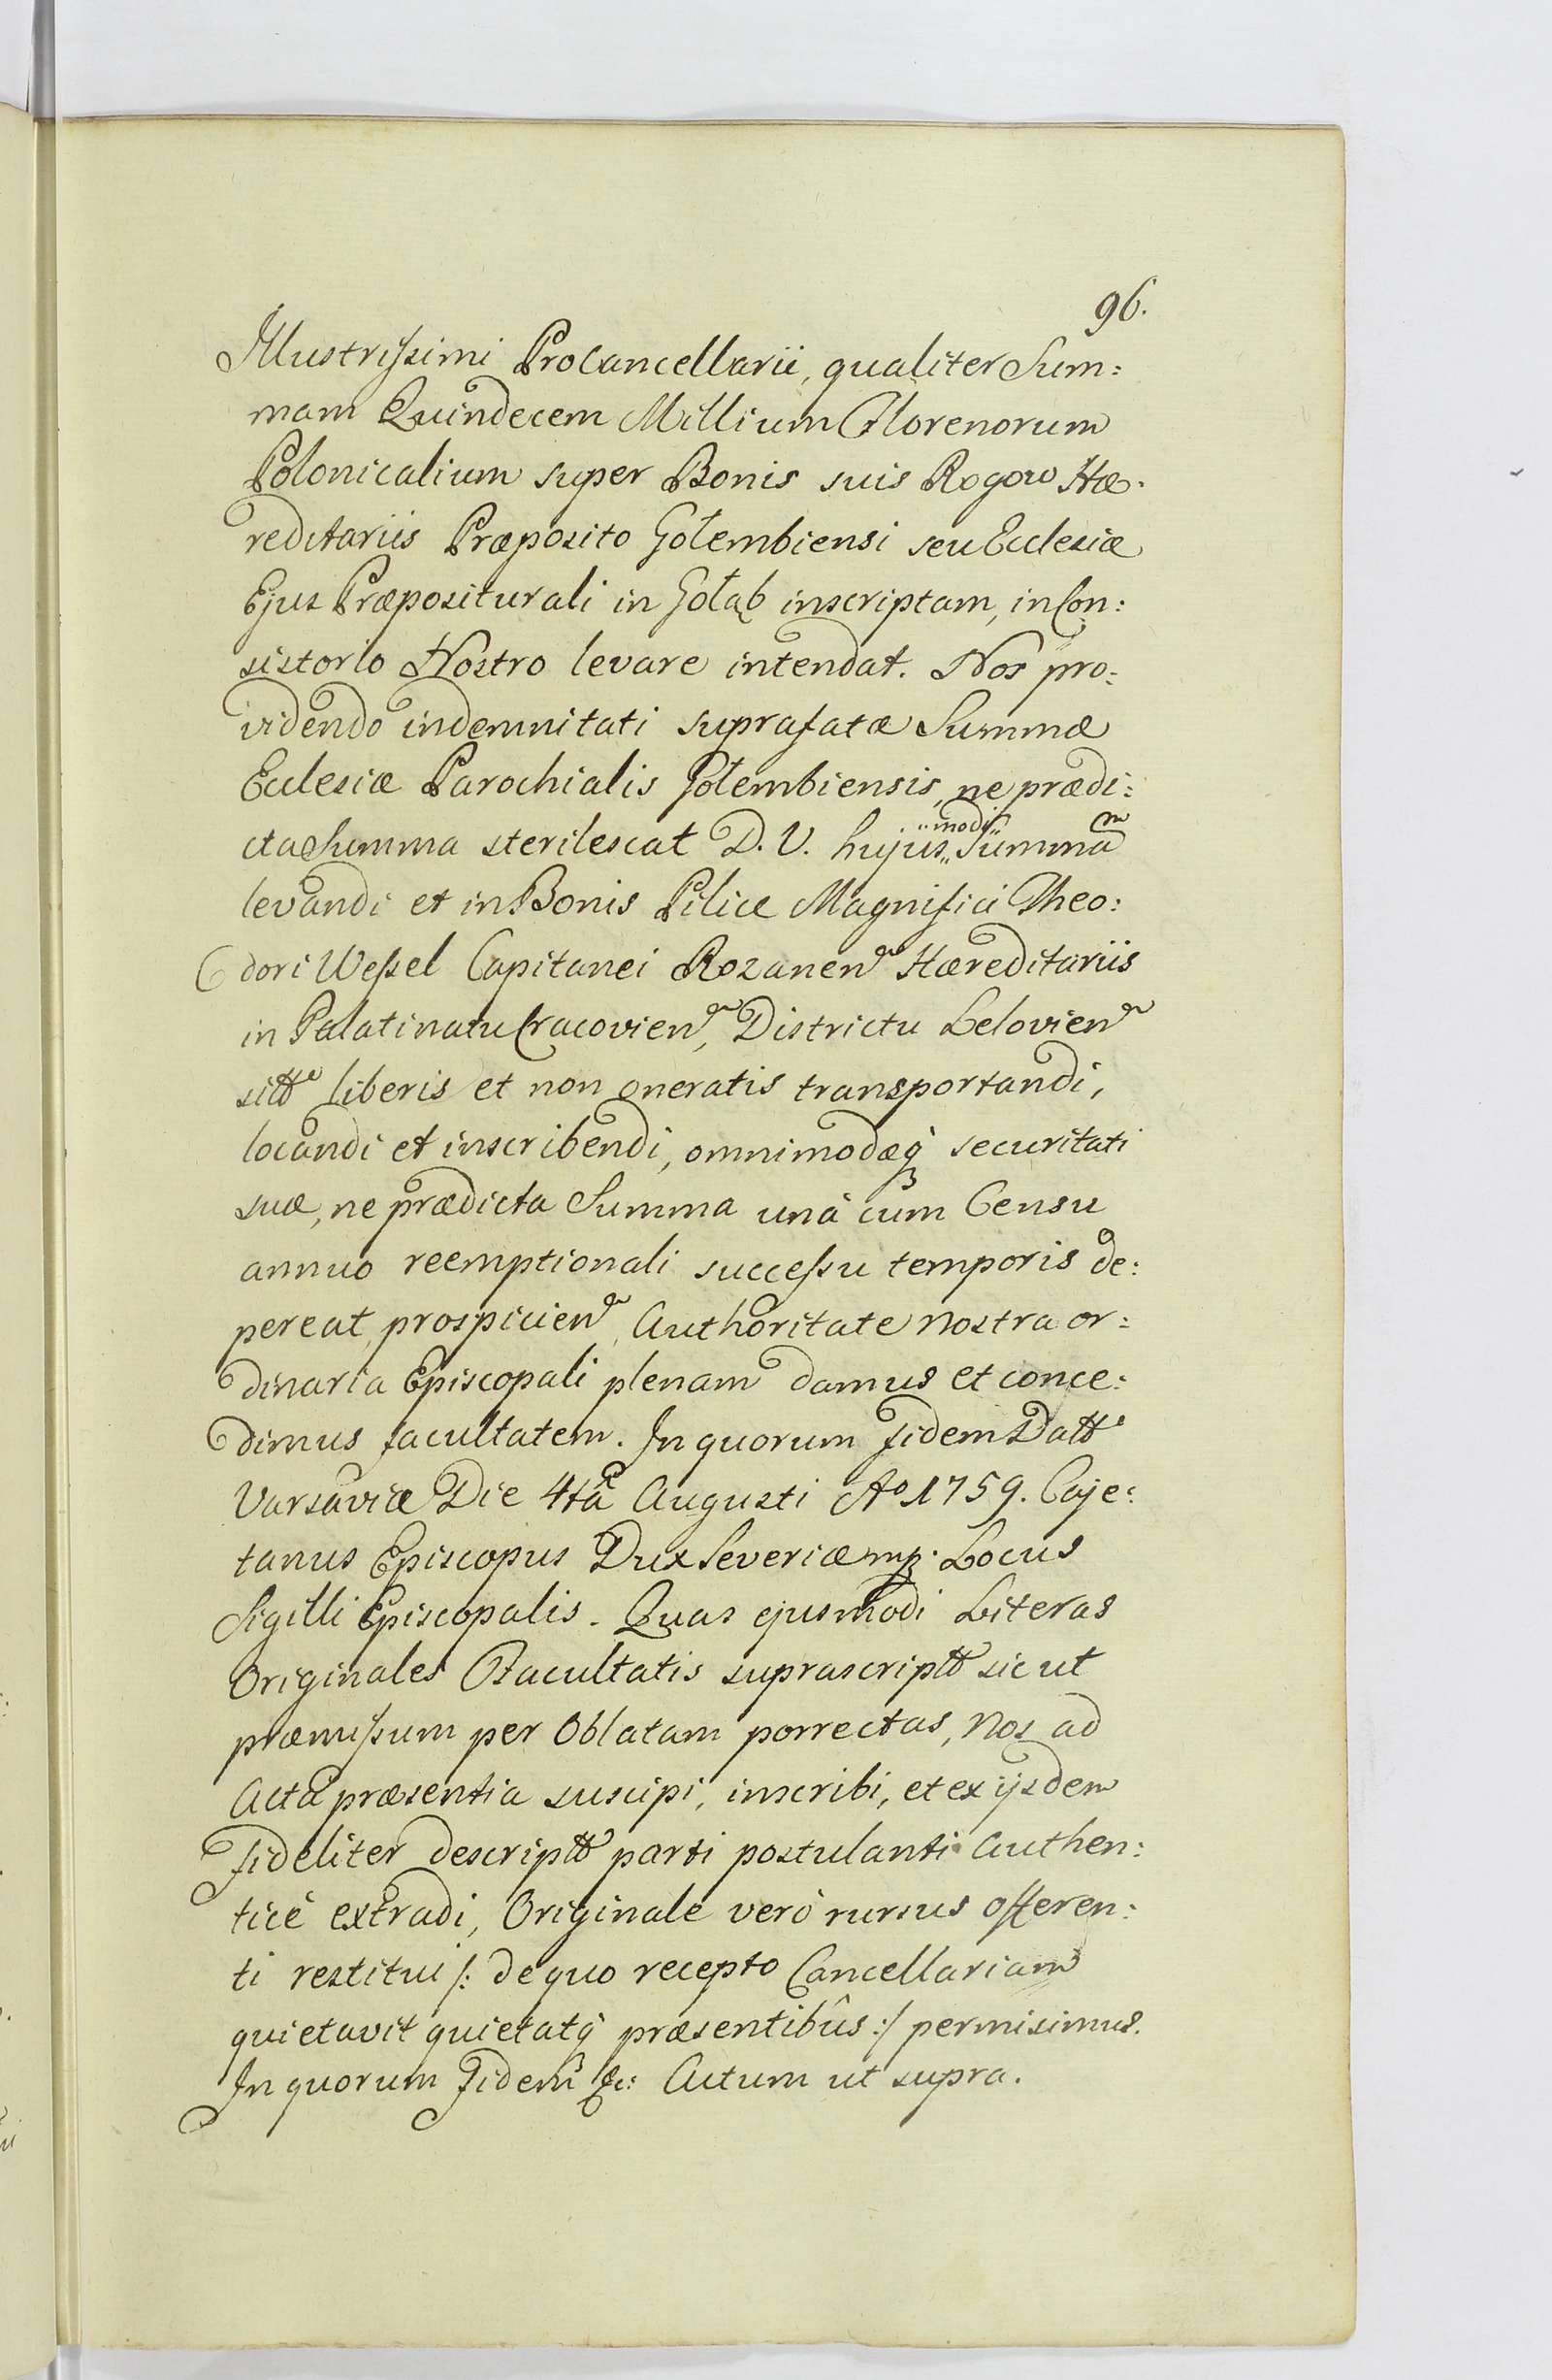 96.
Illustrissimi Procancellarii, qualiter Sum:
mam Quindecem Millium Florenorum
Polonicalium super Bonis suis Rogow Hæ:
reditariis Præposito Gołembiensi seu Ecclesiæ
Ejus Præpositurali in Gołąb inscriptam, in Con:
sistorio Nostro levare intendat. Nos pro:
videndo indemnitati suprafatæ Summæ
Ecclesiæ Parochialis Gołembiensis, ne prædi:
cta Summa sterilescat D. V. hujus„modi„ Summam
levandi et in Bonis Pilicæ Magnifici Theo:
dori Wessel Capitanei Rozanen Hæreditariis
in Palatinatu Cracovien, Districtu Lelovien
sitt liberis et non oneratis transportandi,
locandi et inscribendi, omnimodæq securitati
suæ, ne prædicta Summa unà cum Censu
annuo reemptionali successu temporis de:
pereat, prospicien, Authoritate nostra or:
dinaria Episcopali plenam damus et conce:
dimus facultatem. In quorum fidem Datt
Varsaviæ Die 4tâ Augusti Ao 1759. Caje:
tanus Episcopus Dux Severiæ mp. Locus
Sigilli Episcopalis. Quas ejusmodi Literas
Originales Facultatis suprascriptt sic ut
præmissum per Oblatam porrectas, Nos ad
Acta præsentia suscipi, inscribi, et ex ijsdem
fideliter descriptt parti postulanti Authen:
ticè extradi, Originale verò rursus offeren:
ti restitui /: de quo recepto Cancellariam
quietavit quietatq præsentibûs :/ permisimus.
In quorum Fidem &c: Actum ut supra.